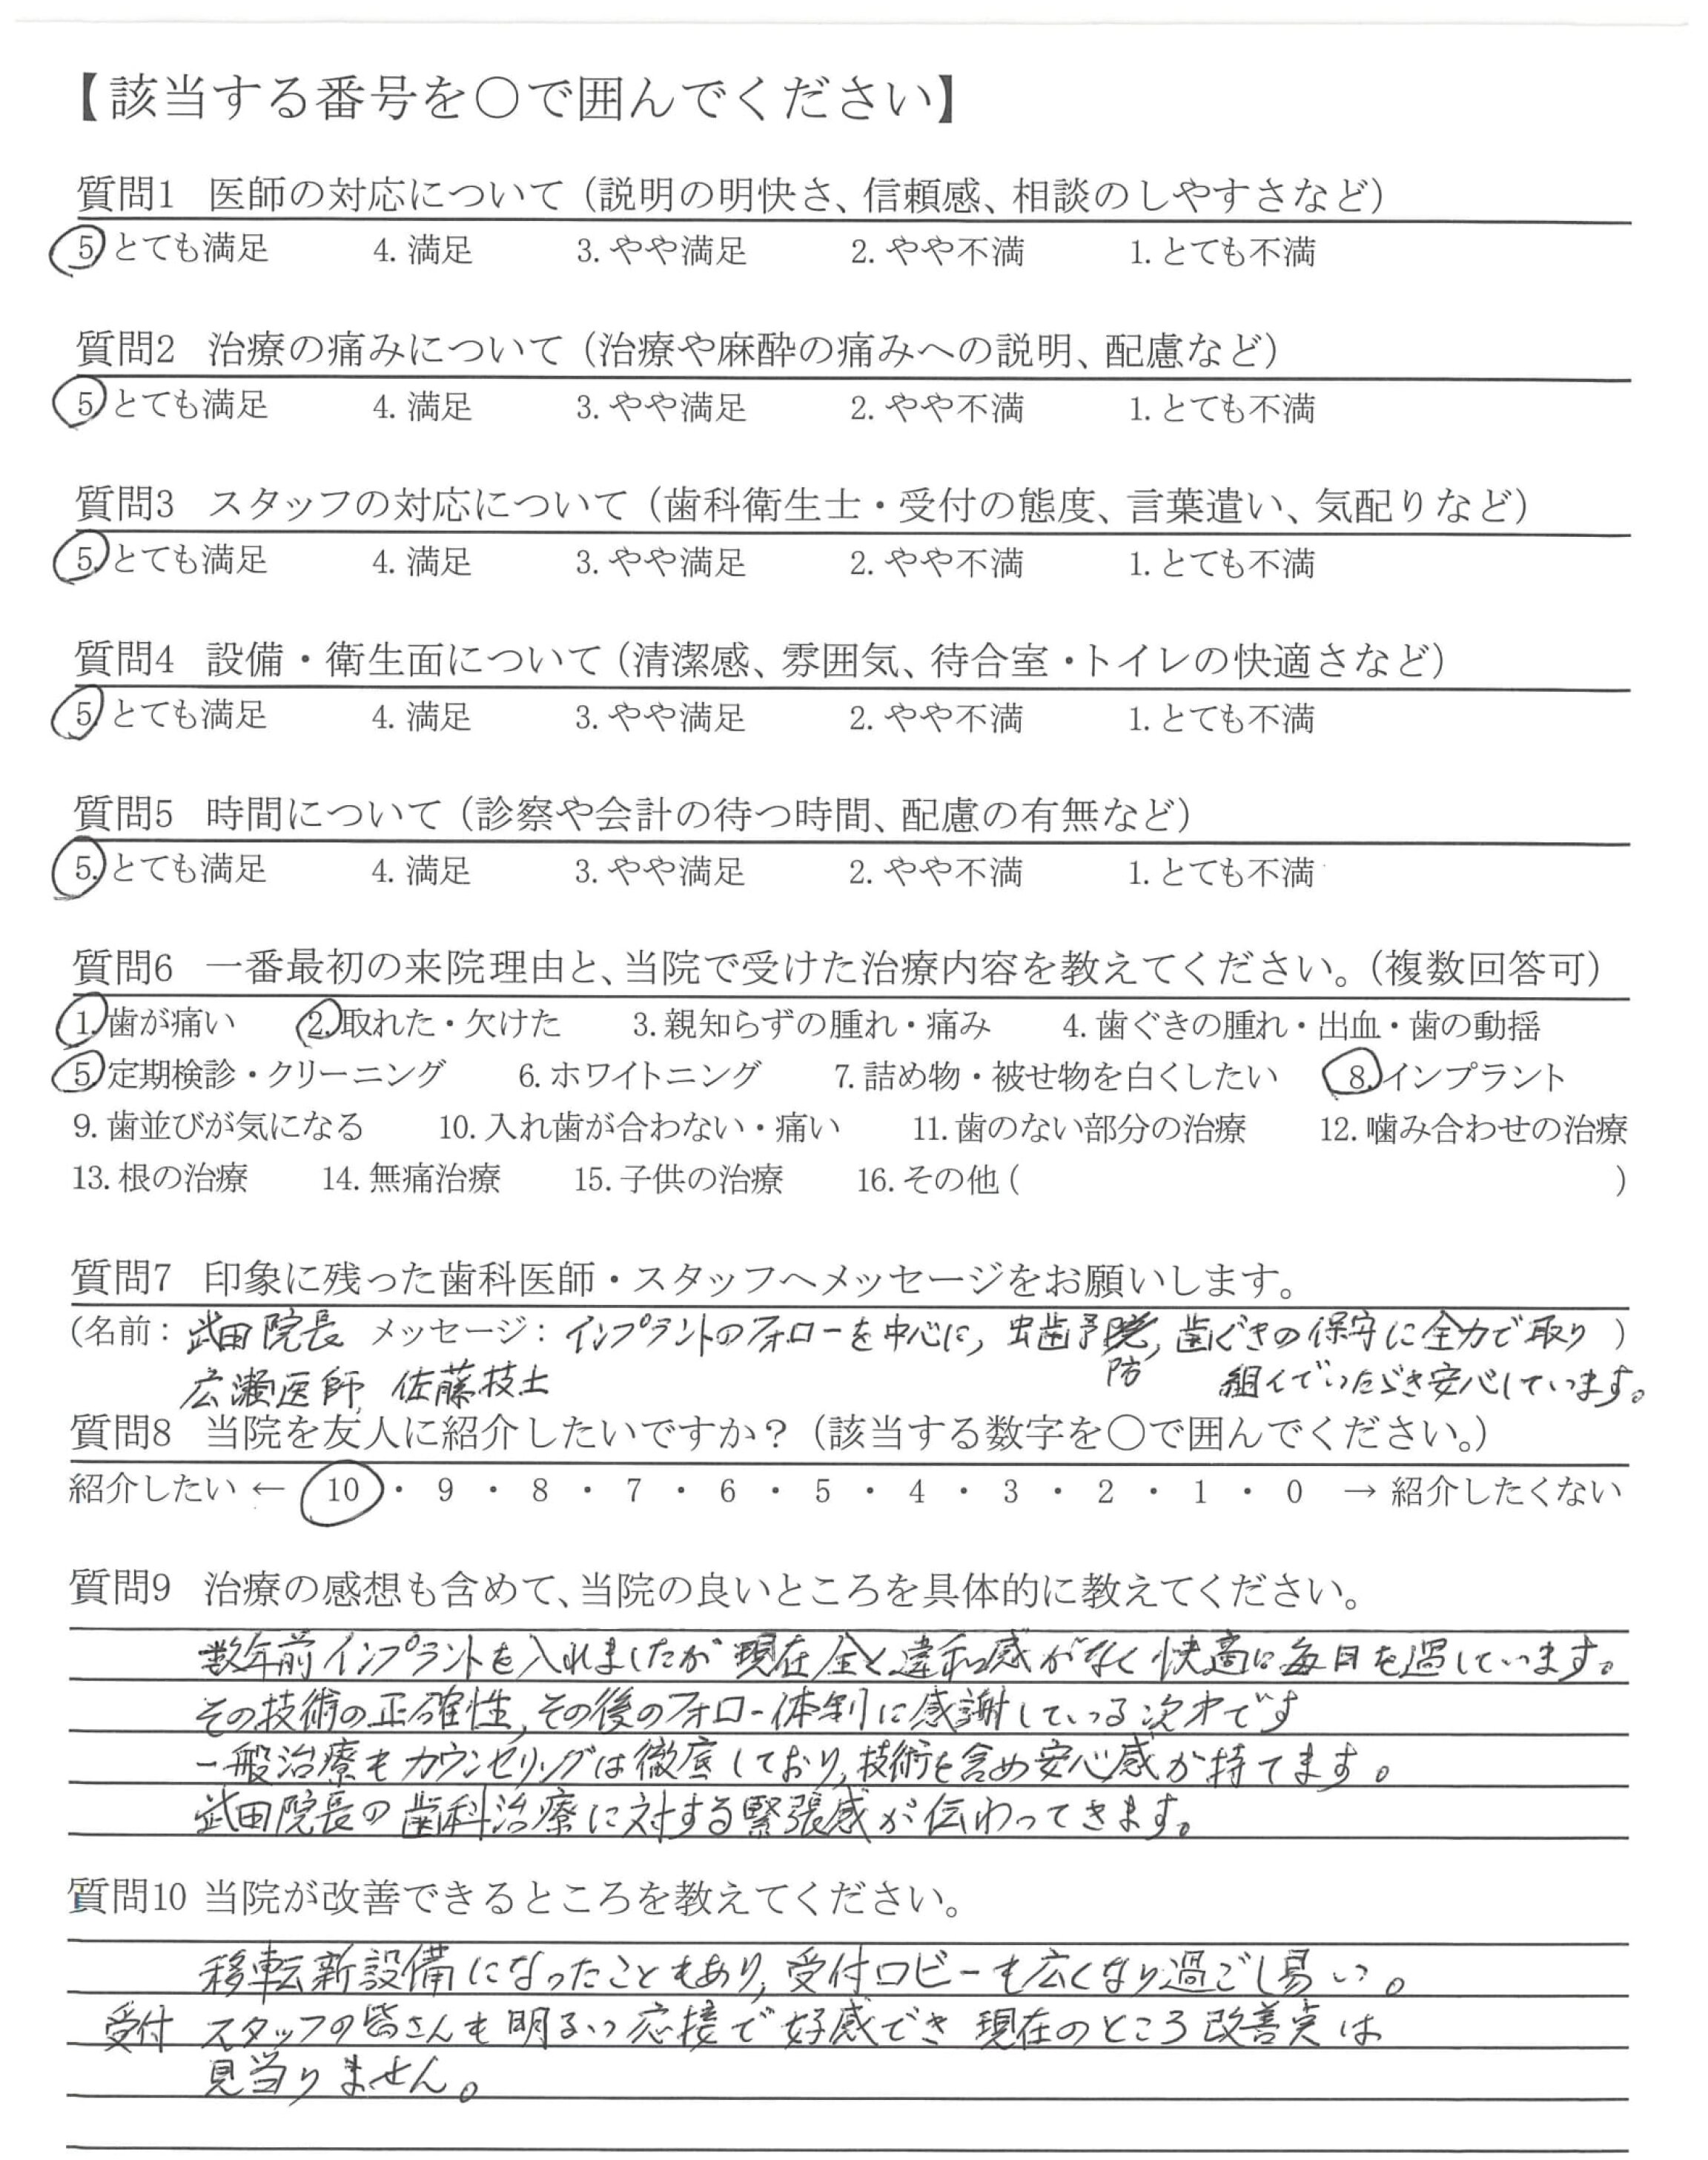 【該当する番号を○で囲んでください】
質問1 医師の対応について（説明の明快さ、信頼感、相談のしやすさなど）
5.とても満足 4.満足 3.やや満足 2.やや不満 1.とても不満
質問2 治療の痛みについて（治療や麻酔の痛みへの説明、配慮など）
5.とても満足 4.満足 3.やや満足 2.やや不満 1.とても不満
質問3 スタッフの対応について（歯科衛生士・受付の態度、言葉遣い、気配りなど）
5.とても満足 4.満足 3.やや満足 2.やや不満 1.とても不満
質問4 設備・衛生面について（清潔感、雰囲気、待合室・トイレの快適さなど）
5.とても満足 4.満足 3.やや満足 2.やや不満 1.とても不満
質問5 時間について（診察や会計の待つ時間、配慮の有無など）
5.とても満足 4.満足 3.やや満足 2.やや不満 1.とても不満
質問6 一番最初の来院理由と、当院で受けた治療内容を教えてください。（複数回答可）
1.歯が痛い 2.取れた・欠けた 3.親知らずの腫れ・痛み 4.歯ぐきの腫れ・出血・歯の動揺
5.定期検診・クリーニング 6.ホワイトニング 7.詰め物・被せ物を白くしたい 8.インプラント
9.歯並びが気になる 10.入れ歯が合わない・痛い 11.歯のない部分の治療 12.噛み合わせの治療
13.根の治療 14.無痛治療 15.子供の治療 16.その他（ ）
質問7 印象に残った歯科医師・スタッフへメッセージをお願いします。
（名前：武田院長 メッセージ：インプラントのフォローを中心に,虫歯予防,歯ぐきの保守に全力で取り）
広瀬医師,佐藤技士 組んでいただき安心しています。
質問8 当院を友人に紹介したいですか？（該当する数字を○で囲んでください。）
紹介したい ← 10・9・8・7・6・5・4・3・2・1・0 → 紹介したくない
質問9 治療の感想も含めて、当院の良いところを具体的に教えてください。
数年前インプラントを入れましたが現在全く違和感がなく快適に毎日を過しています。
その技術の正確性,その後のフォロー体制に感謝している次才です
一般治療もカウンセリングは徹底しており,技術を含め安心感が持てます。
武田院長の歯科治療に対する緊張感が伝わってきます。
質問10 当院が改善できるところを教えてください。
移転新設備になったこともあり,受付ロビーも広くなり過ごし易い。
受付 スタッフの皆さんも明るい応接で好感でき現在のところ改善点は
見当りません。